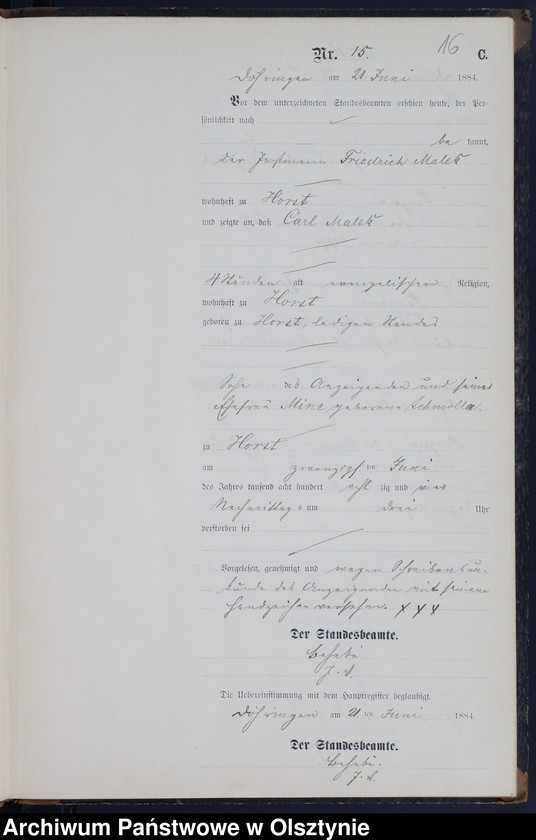 16
Nr. 15. C.
Döhringen am 21. Juni 1884.
Vor dem unterzeichneten Standesbeamten erschien heute, der Per-
sönlichkeit nach
be kannt,
der Instmann Friedrich Malek
wohnhaft zu Horst
und zeigte an, daß Carl Malek
4 Stunden alt evangelischer Religion,
wohnhaft zu Horst
geboren zu Horst, ledigen Standes
Sohn des Anzeigenden und seiner
Ehefrau Mine geborene Schmolla.
zu Horst
am zwanzigsten Juni
des Jahres tausend acht hundert acht zig und vier
Nachmittags um drei Uhr
verstorben sei
Vorgelesen, genehmigt und wegen Schreibensun-
kunde des Anzeigenden mit seinem
Handzeichen versehen. XXX
Der Standesbeamte.
J. V.
Die Uebereinstimmung mit dem Hauptregister beglaubigt.
Döhringen am 21 ten Juni 1884.
Der Standesbeamte.
J. V.
Archiwum Państwowe w Olsztynie